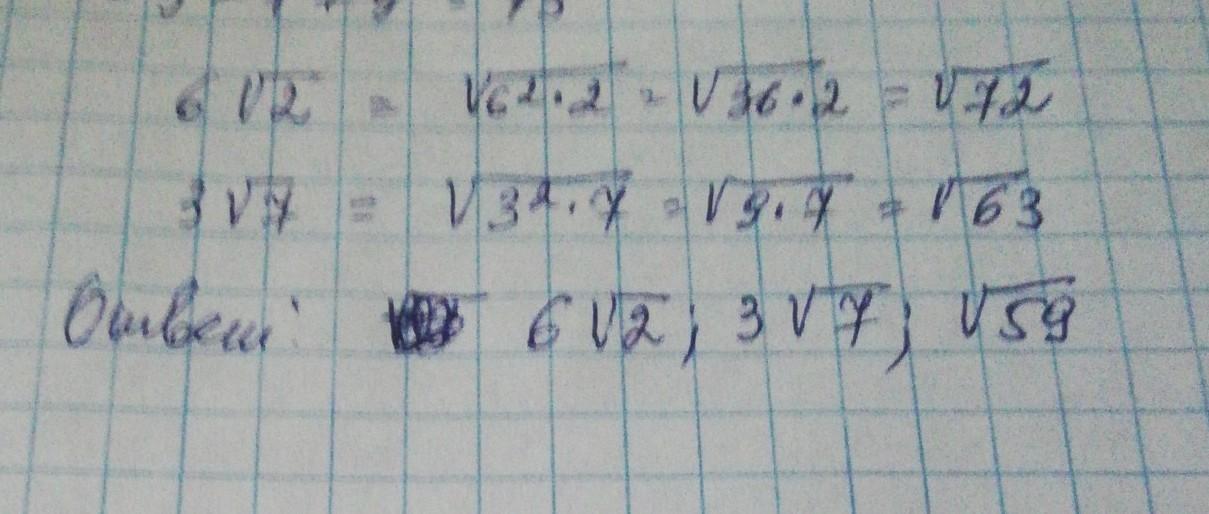 6√2 = √6²·2 = √36·2 = √72
3√7 = √3²·7 = √9·7 = √63
Ответ: 6√2; 3√7; √59